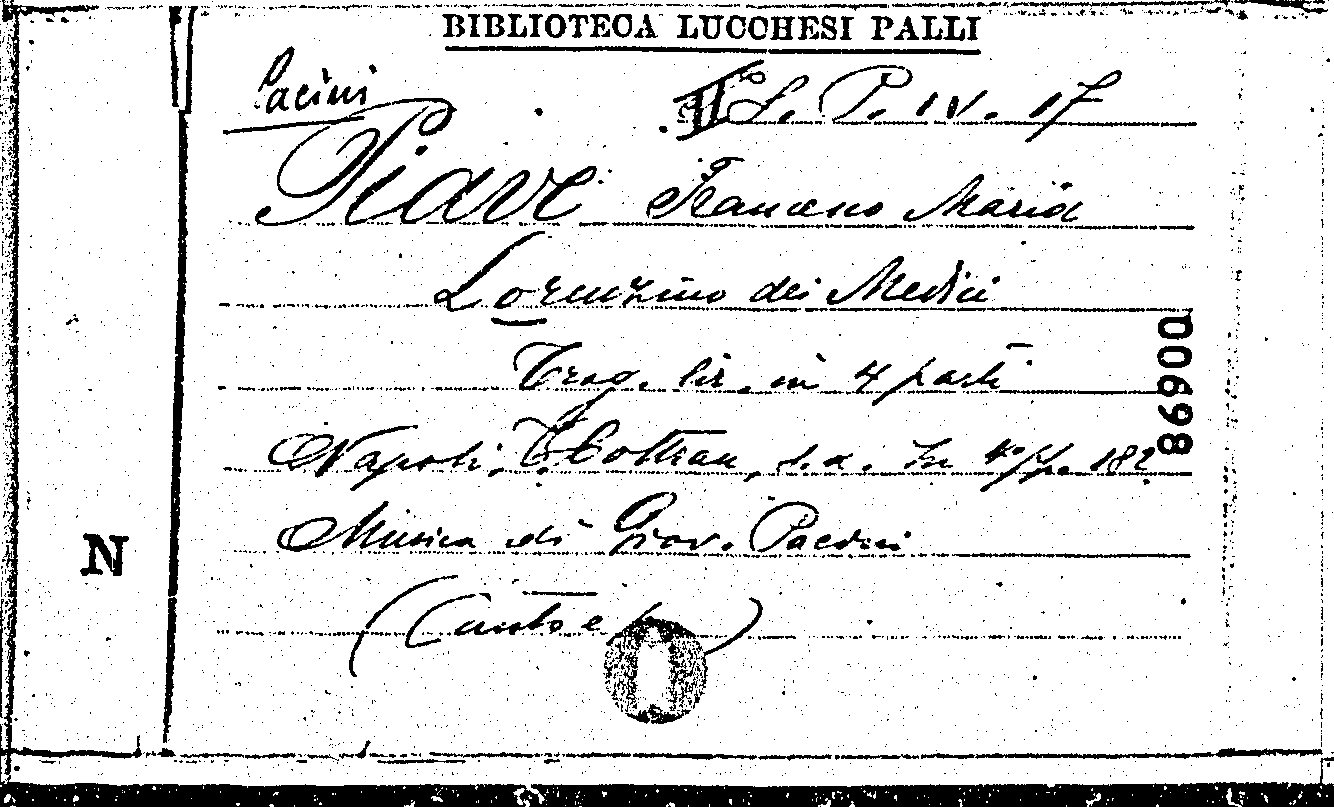 BIBLIOTECA LUCCHESI PALLI
Pacini
L. P. IV. 17
Piave Francesco Maria
Lorenzino dei Medici
Trag. lir. in 4 parti
Napoli, T. Cottrau, s.a. In 4° pp. 182
Musica di Giov. Pacini
(Canto e
N
00698